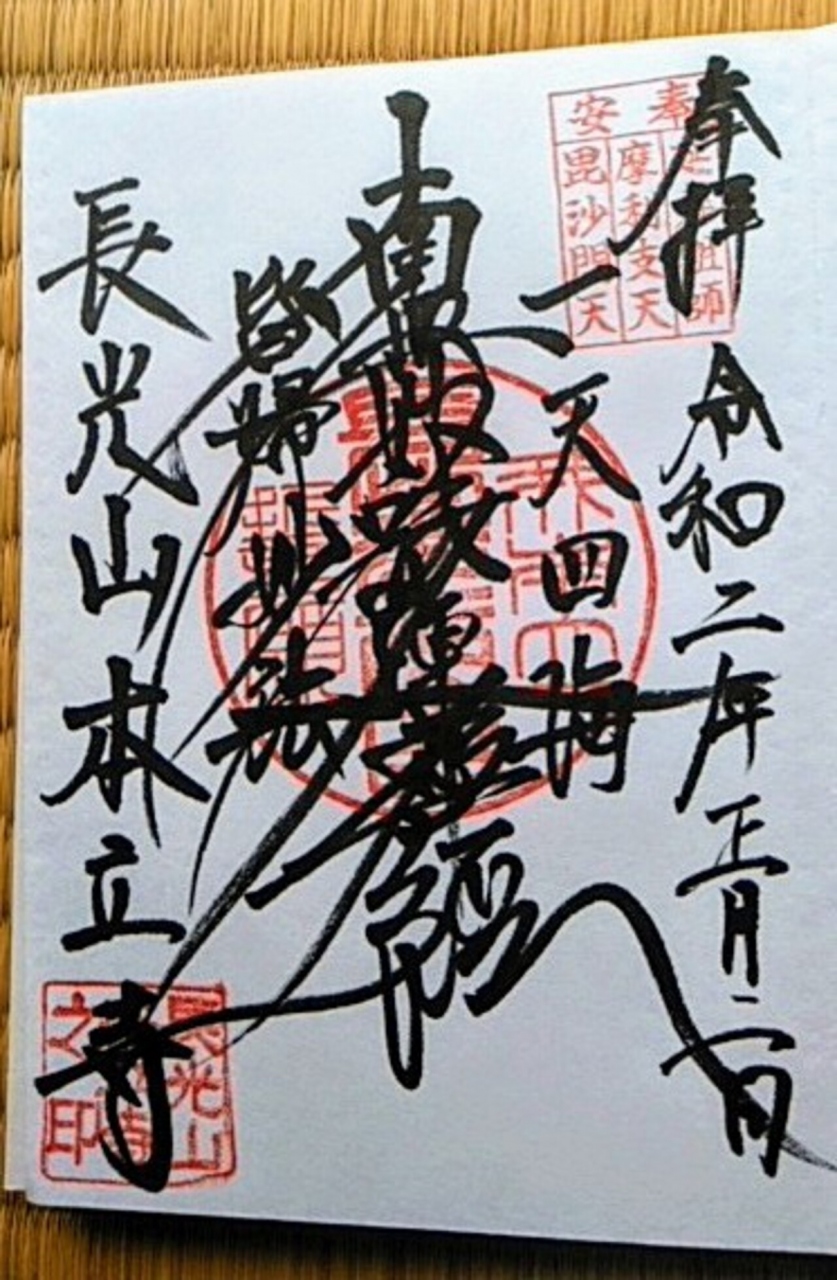 奉拝
令和二年正月二日
一天四海
南無妙法蓮華経
皆帰妙法
長光山本立寺
奉安
摩利支天
毘沙門天
長光山
之印